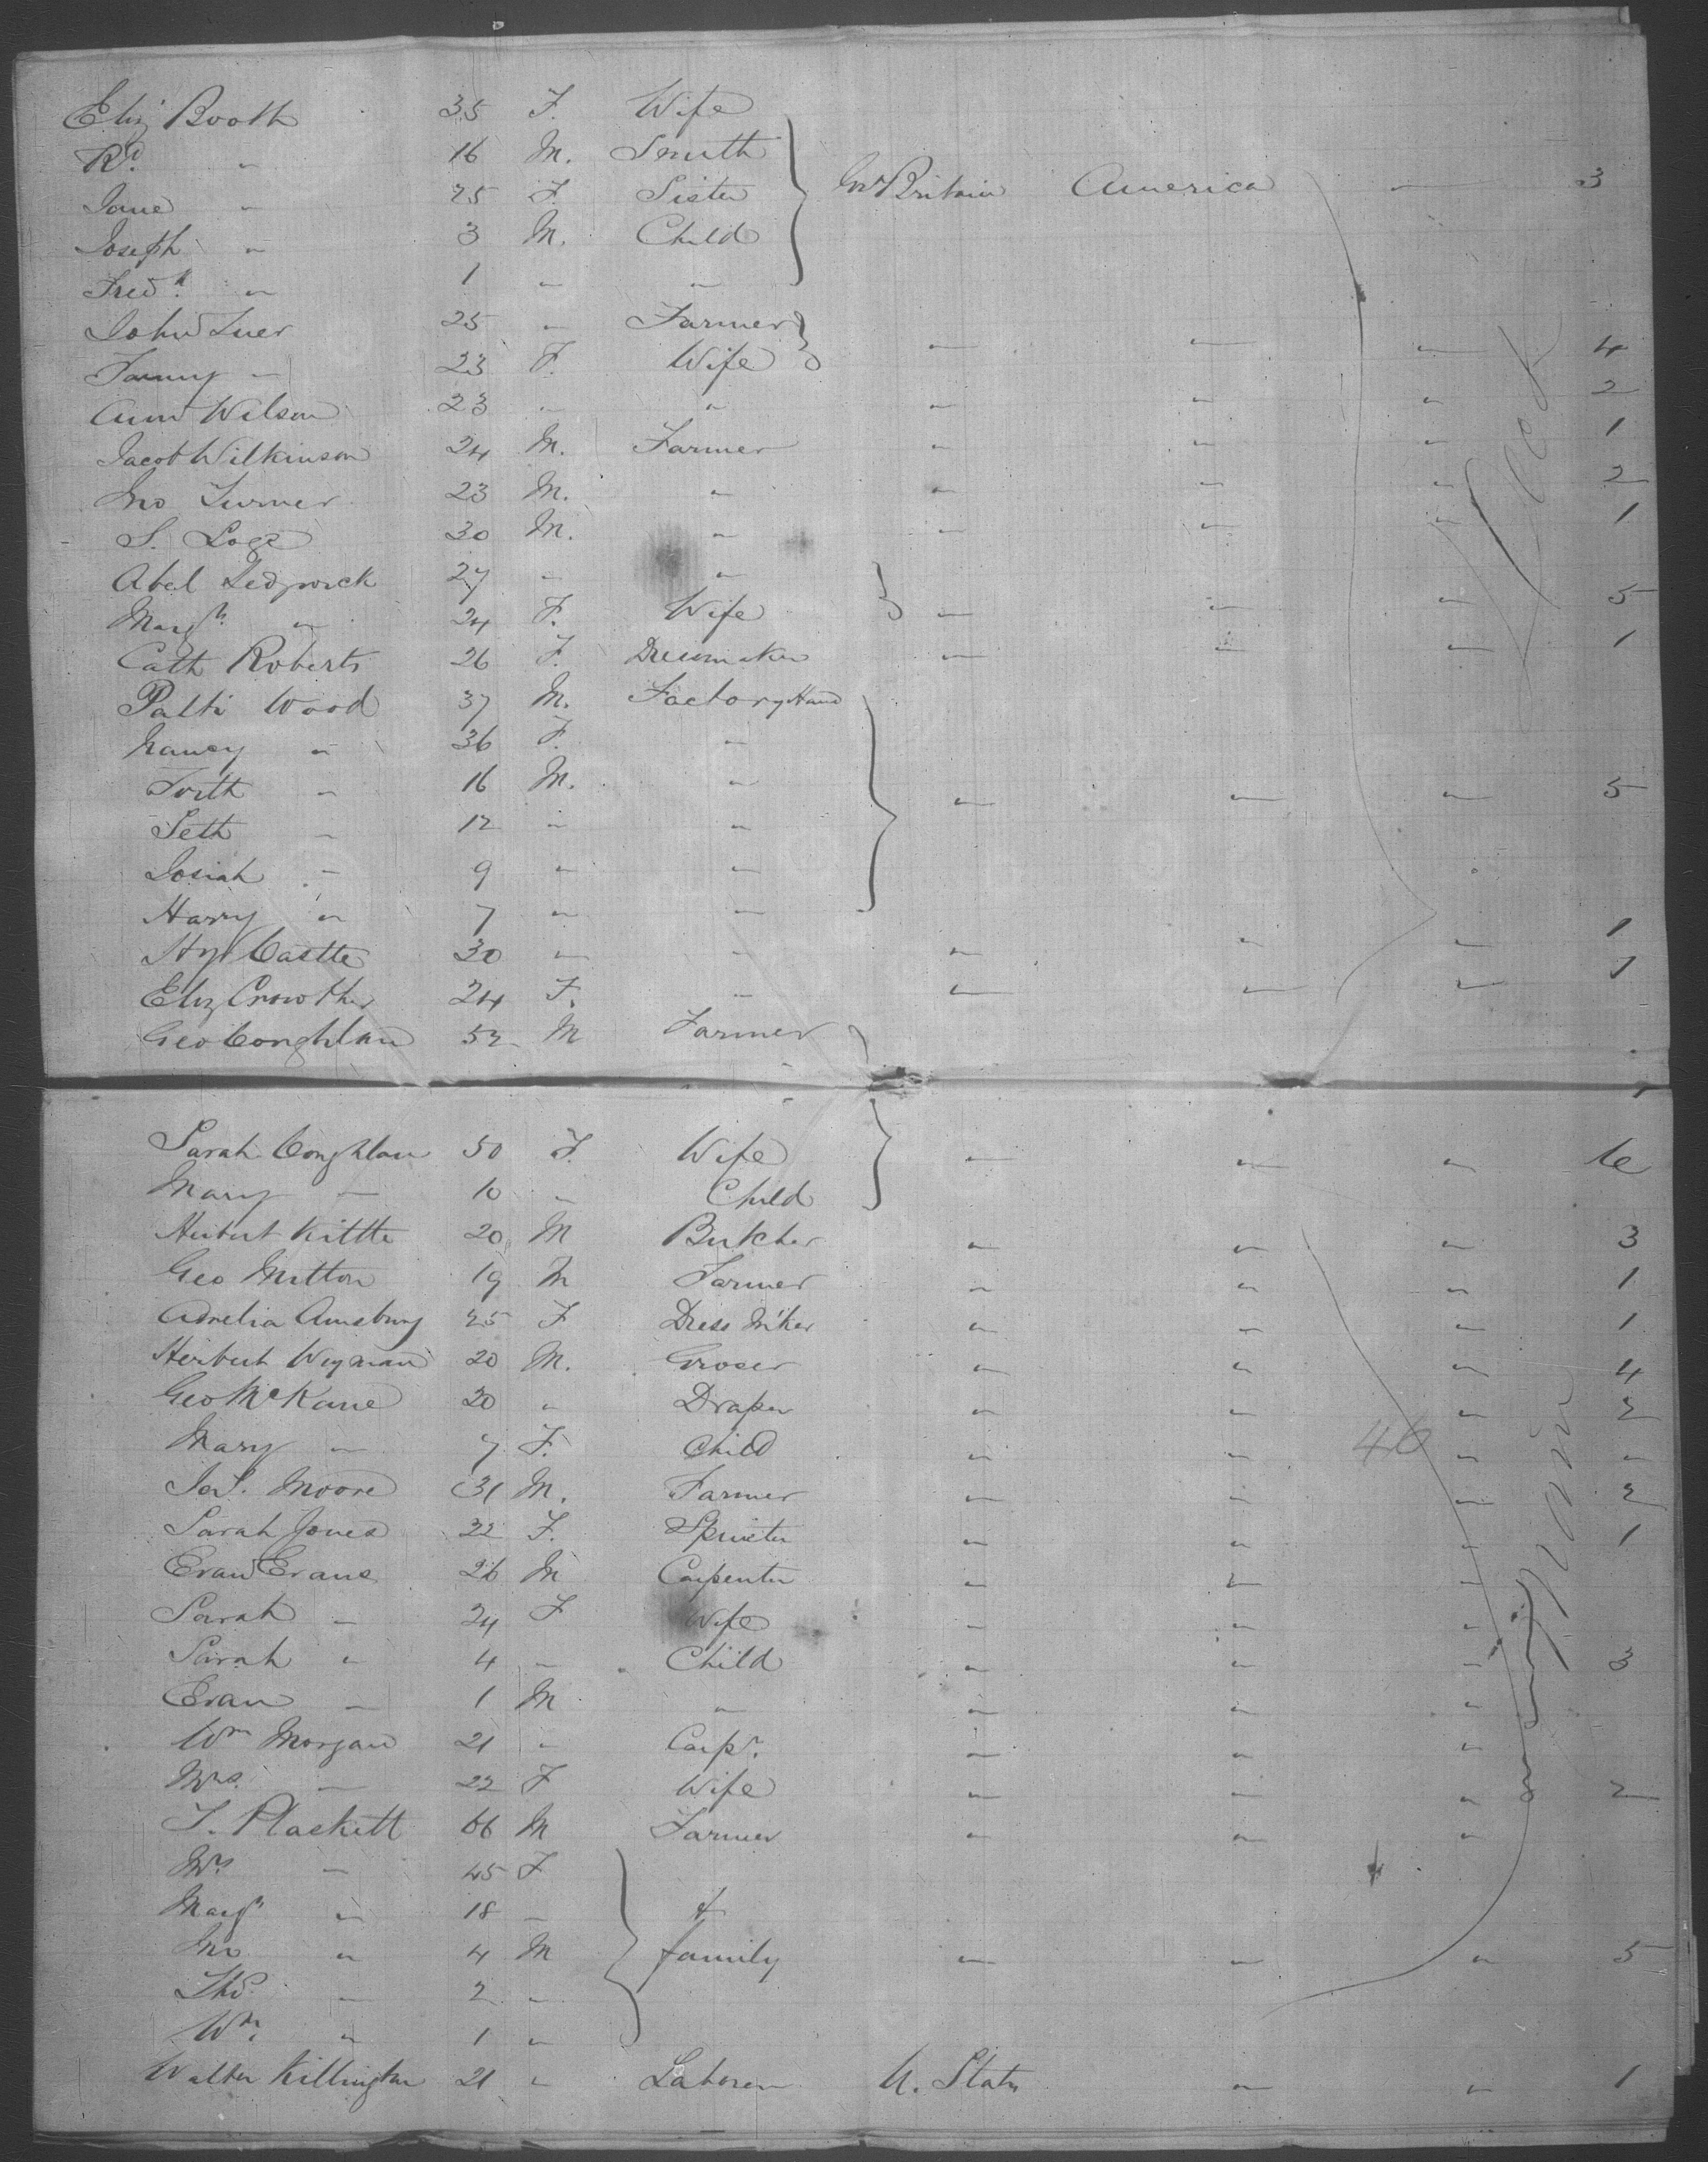 Eliz Booth 35 F. Wife
Rd. " 16 M. Smith
Jane " 25 F. Sister Gt Britain America " 3
Joseph " 3 M. Child
Fredk. " 1 " "
John Luer 25 " Farmer
Fanny " 23 F. Wife " " " 4
Ann Wilson 23 " " " " " 2
Jacob Wilkinson 24 M. Farmer " " " 1
Jno Turner 23 M. " " " " 2
S. 30 M. " " " " 1
Abel 27 " "
Margt. " 24 F. Wife " " " 5
Cath Roberts 26 F. Dressmaker " " " 1
Wood 37 M. Factory Hand
Nancy " 36 F. "
16 M. " " " " 5
Seth " 12 " "
Josiah " 9 " "
Harry " 7 " "
Hy Castle 30 " " " " " 1
Eliz Crowther 24 F. " " " " 1
Geo Coughlan 52 M Farmer
Sarah Coughlan 50 F. Wife " " "
Mary " 10 " Child
Herbert Kittle 20 M Butcher " " " 3
Geo Mitton 19 M Farmer " " " 1
Adnelia Amsbury 25 F Dress M'ker " " " 1
Herbert Wyman 20 M. Groser " " " 4
Geo McKane 20 " Draper " " " 2
Mary " 7 F. Child " " 46 " "
Jos. Moore 31 M. Farmer " " " 2
Sarah Jones 22 F. Spinster " " " 1
Evan Evans 26 M Carpenter " " "
Sarah " 24 F Wife " " "
Sarah " 4 " Child " " " 3
Evan " 1 M " " " "
Wm Morgan 21 " Carpr. " " "
Mrs. " 22 F Wife " " " 2
T. Plackett 66 M Farmer " " "
Mrs " 45 F
Margt " 18 " &
Jno " 4 M family " " " 5
Thos. " 2 "
Wm. " 1 "
Walter Killington 21 " Laborer U. States " " 1